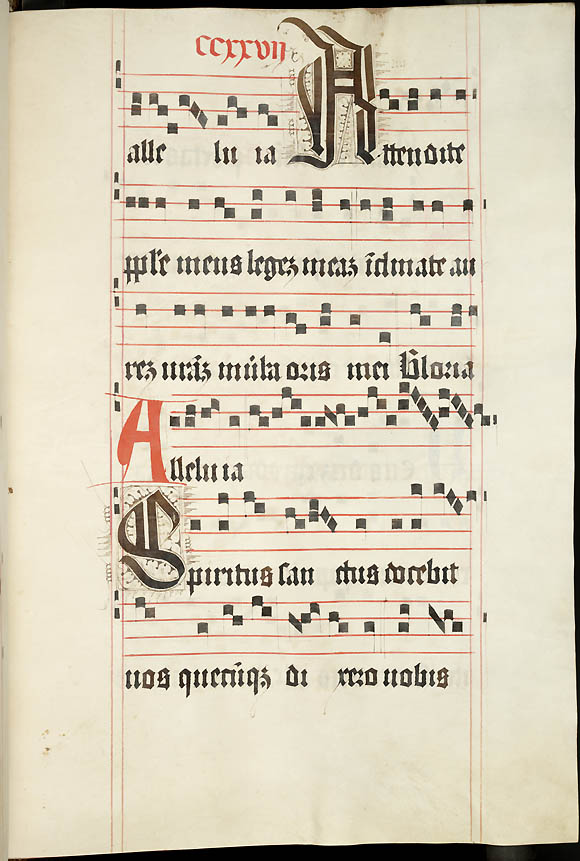 ccxxvii
alle lu ia Attendite
pple meus legeʒ meaʒ īclinate au
reʒ vrāʒ in ūba oris mei Gloria
Alleluia
Spiritus san ctus docebit
vos quecūqʒ di xero vobis